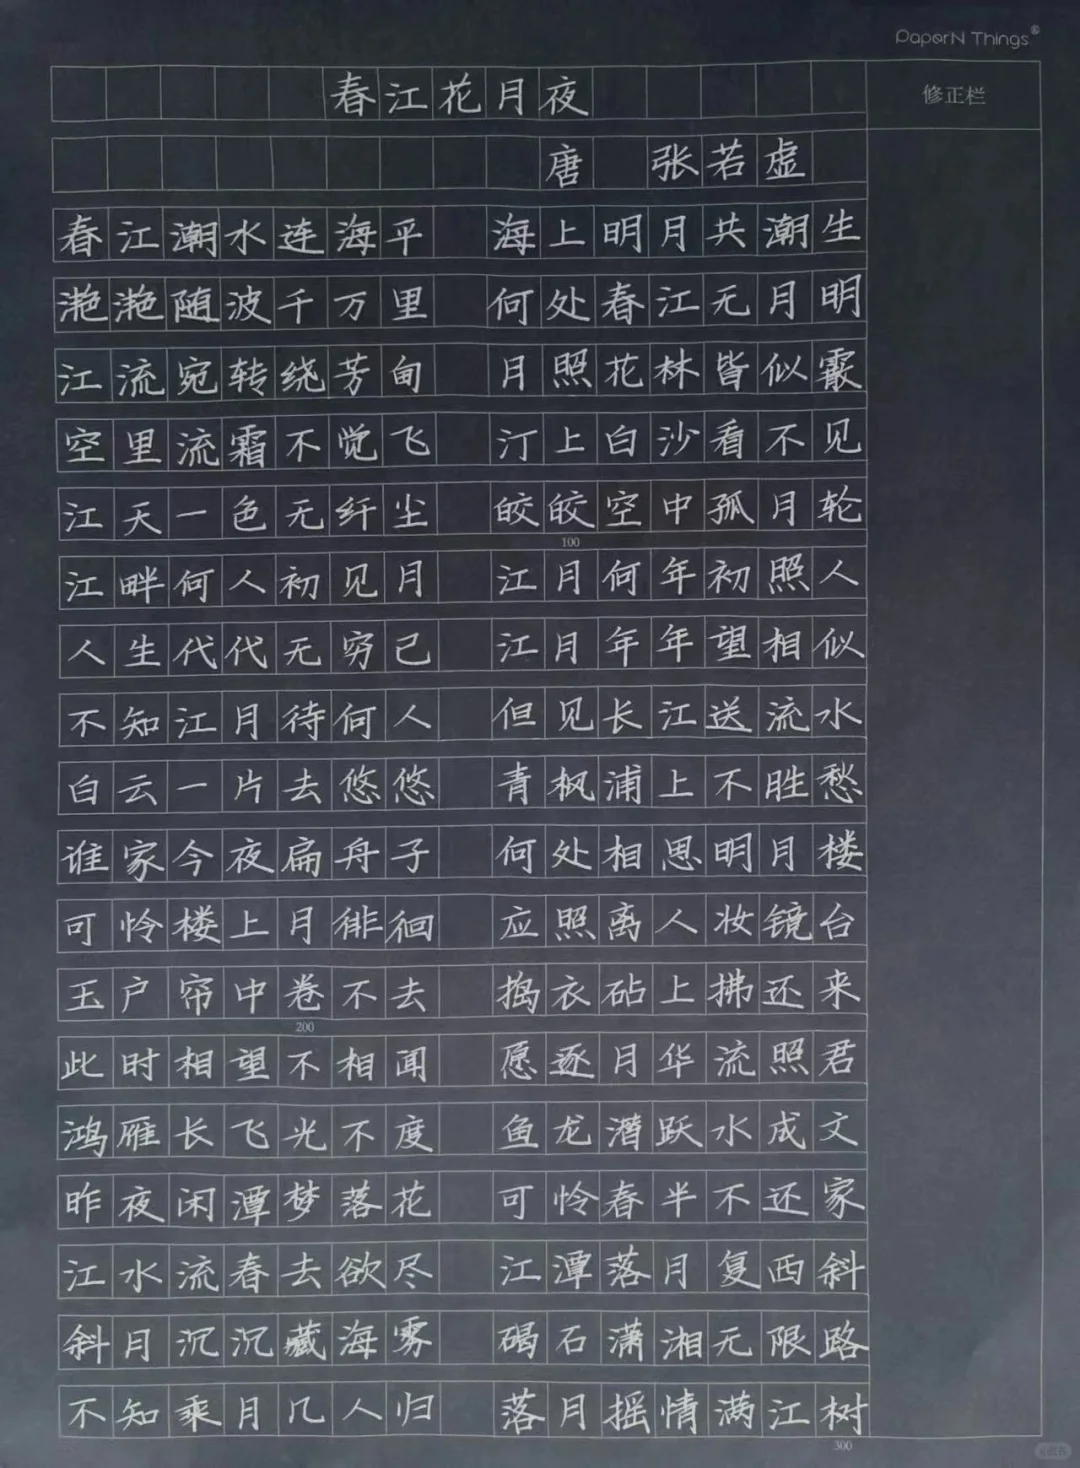 PaperN Things®
修正栏
春江花月夜
唐 张若虚
春江潮水连海平 海上明月共潮生
滟滟随波千万里 何处春江无月明
江流宛转绕芳甸 月照花林皆似霰
空里流霜不觉飞 汀上白沙看不见
江天一色无纤尘 皎皎空中孤月轮
100
江畔何人初见月 江月何年初照人
人生代代无穷已 江月年年望相似
不知江月待何人 但见长江送流水
白云一片去悠悠 青枫浦上不胜愁
谁家今夜扁舟子 何处相思明月楼
可怜楼上月徘徊 应照离人妆镜台
玉户帘中卷不去 捣衣砧上拂还来
200
此时相望不相闻 愿逐月华流照君
鸿雁长飞光不度 鱼龙潜跃水成文
昨夜闲潭梦落花 可怜春半不还家
江水流春去欲尽 江潭落月复西斜
斜月沉沉藏海雾 碣石潇湘无限路
不知乘月几人归 落月摇情满江树
300